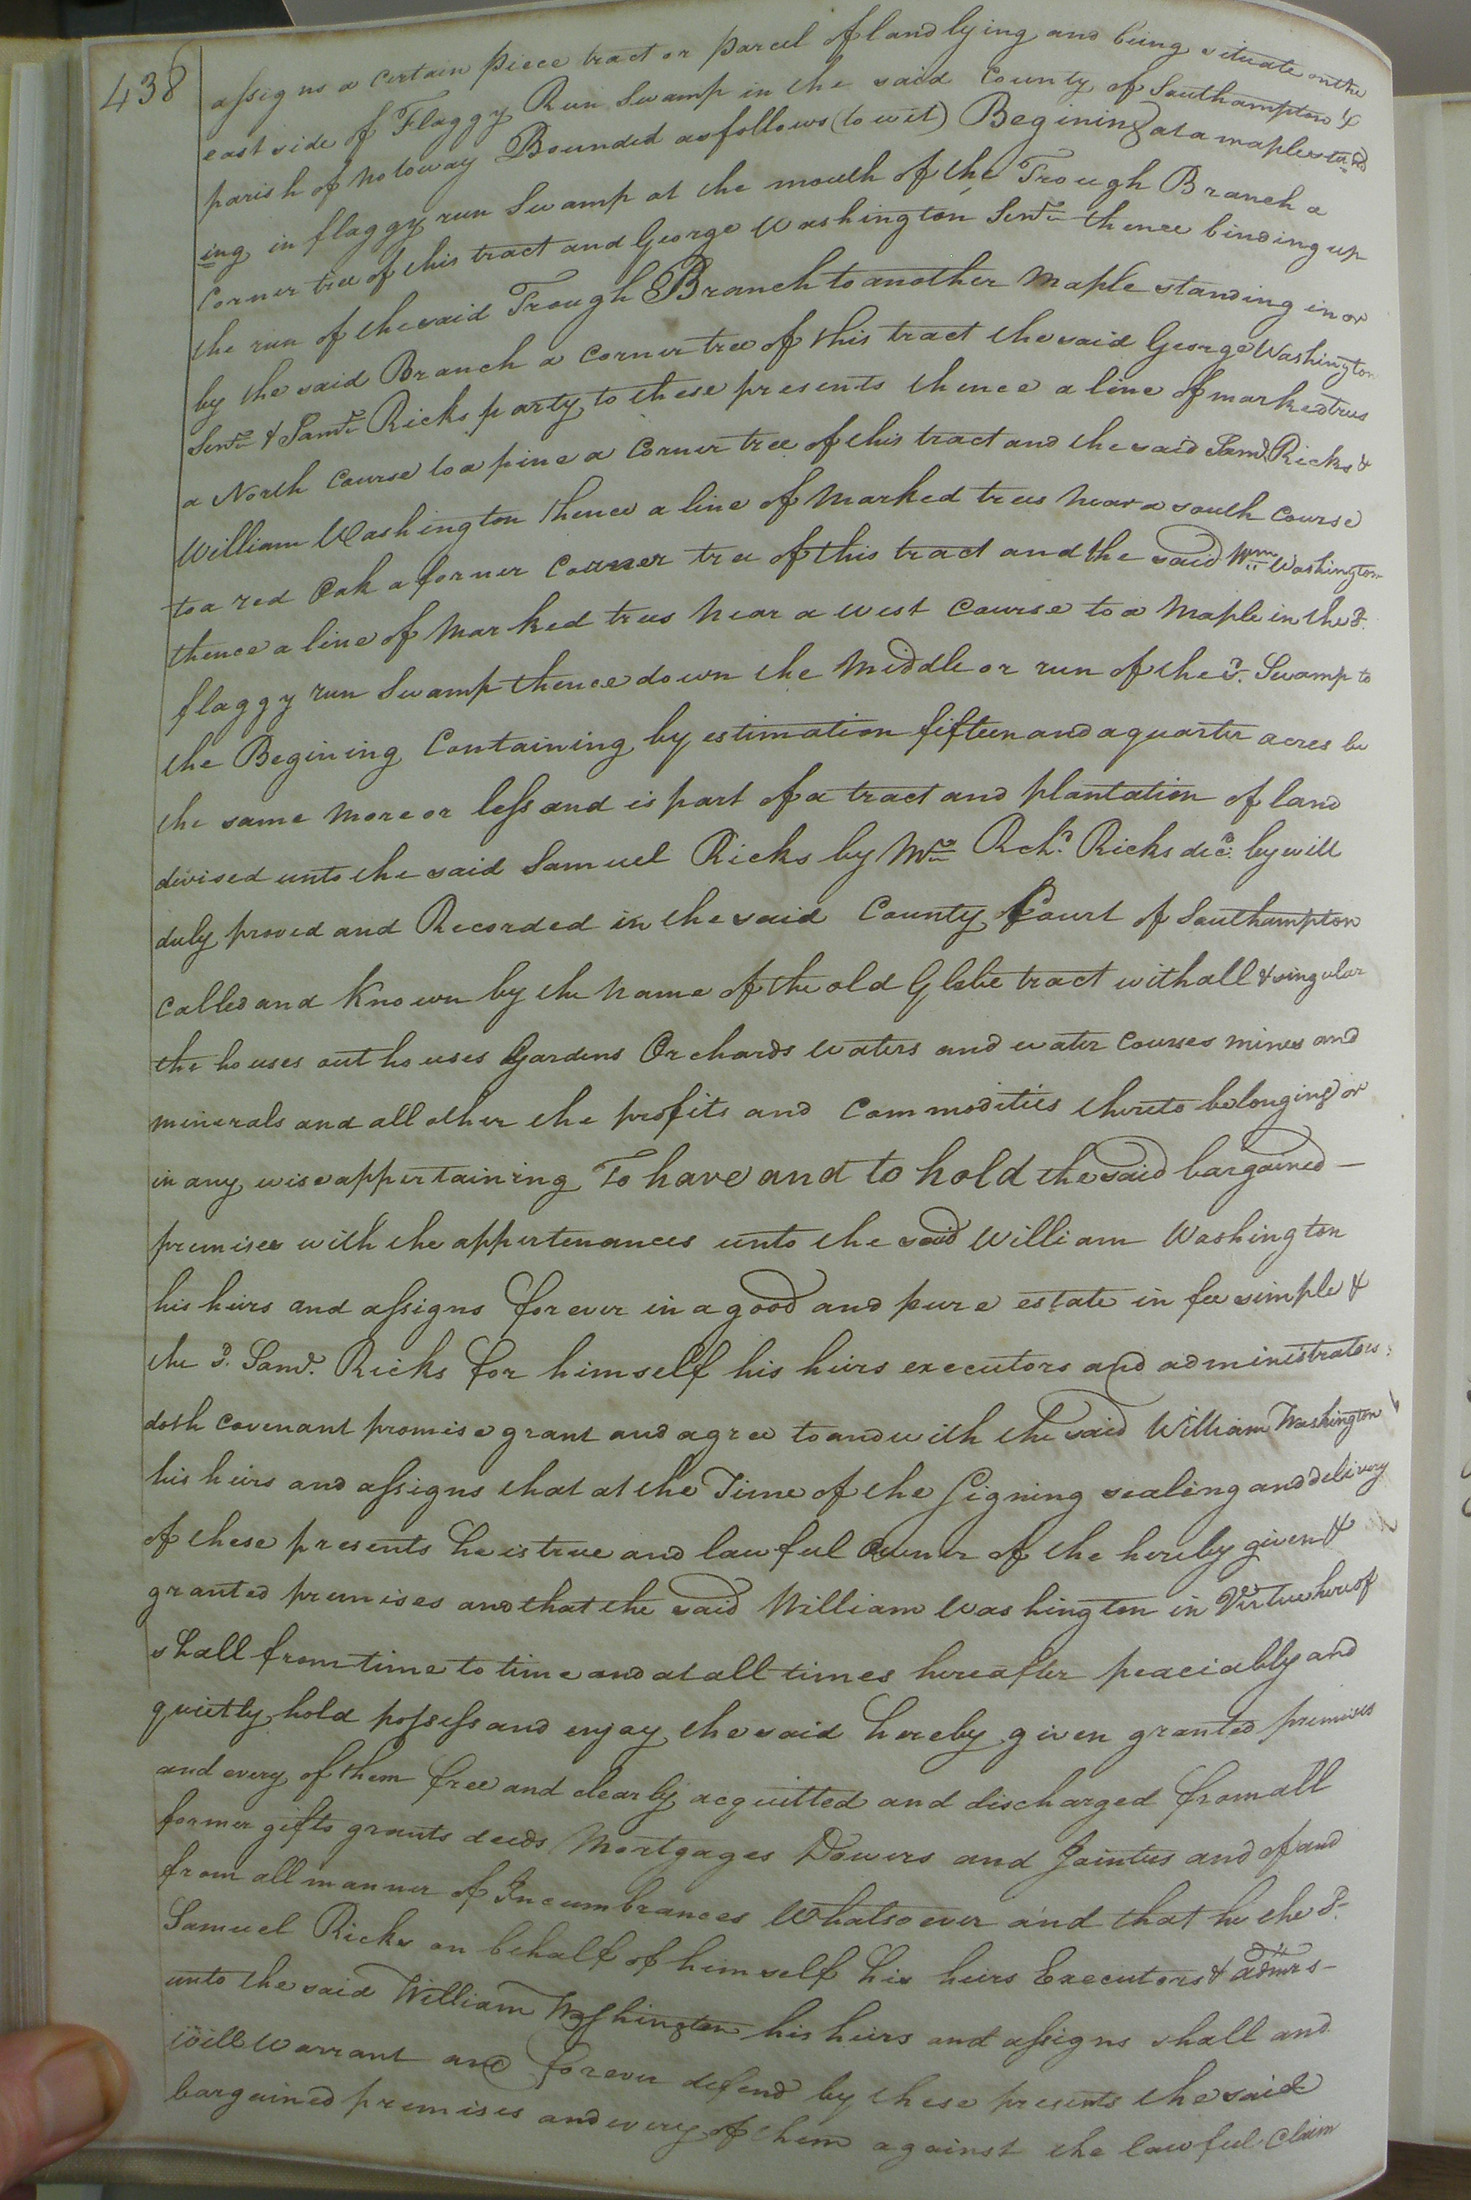 438
assigns a certain piece tract or parcel of land lying and being situate on the
east side of Flaggy Run Swamp in the said County of Southampton &
parish of Notoway Bounded as follows (to wit) Begining at a maple stand
ing in flaggy run Swamp at the mouth of the Trough Branch a
Corner tree of this tract and George Washington Senr thence binding up
the run of the said Trough Branch to another Maple standing in or
by the said Branch a Corner tree of this tract the said George Washington
Senr & Saml Ricks party to these presents thence a line of marked trees
a North Course to a pine a Corner tree of this tract and the said Saml. Ricks &
William Washington thence a line of Marked trees near a south Course
to a red Oak a former Corner tree of this tract and the said Wm Washington
thence a line of Marked trees near a west Course to a Maple in the sd.
flaggy run Swamp thence down the Middle or run of the sd. Swamp to
the Begining Containing by estimation fifteen and a quarter acres be
the same More or less and is part of a tract and plantation of land
devised unto the said Samuel Ricks by Rchd. Ricks decd. by will
duly proved and Recorded in the said County Court of Southampton
Called and Known by the Name of the old Glebe tract with all & singular
the houses out houses Gardens Orchards Waters and water Courses mines and
minerals and all other the profits and Commodities thereto belonging or
in any wise appertaining To have and to hold the said bargained —
premises with the appertenances unto the said William Washington
his heirs and assigns forever in a good and pure estate in fee simple &
the sd. Saml. Ricks for himself his heirs executors and administrators
doth Covenant promise grant and agree to and with the said William Washington
his heirs and assigns that at the Time of the Signing sealing and delivery
of these presents he is true and lawful Owner of the hereby given &
granted premises and that the said William Washington in Virtue hereof
shall from time to time and at all times hereafter peaciably and
quietly hold possess and enjoy the said hereby given granted premises
and every of them free and clearly acquitted and discharged from all
former gifts grants deeds Mortgages Dowers and Jointus and of and
from all manner of Incumbrances Whatsoever and that he the sd.
Samuel Ricks on behalf of himself his heirs Executors & admrs -
unto the said William Washington his heirs and assigns shall and
will Warrant and forever defend by these presents the said
bargained premises and every of them against the lawful Claim